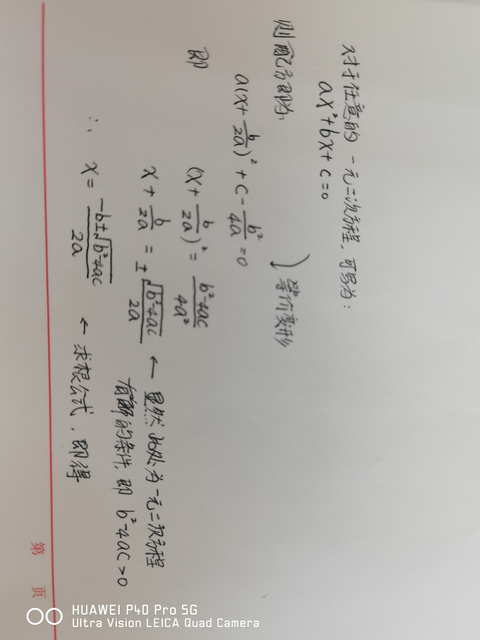 对于任意的一元二次方程,可写为:
ax²+bx+c=0
则配方即为:
a(x+b/2a)²+c-b²/4a=0
等价变形
即 (x+b/2a)²=b²-4ac/4a²
x+b/2a=±√b²-4ac/2a ← 显然此处为一元二次方程
有解的条件,即 b²-4ac>0
∴ x=-b±√b²-4ac/2a ← 求根公式,即得
第 页
HUAWEI P40 Pro 5G
Ultra Vision LEICA Quad Camera